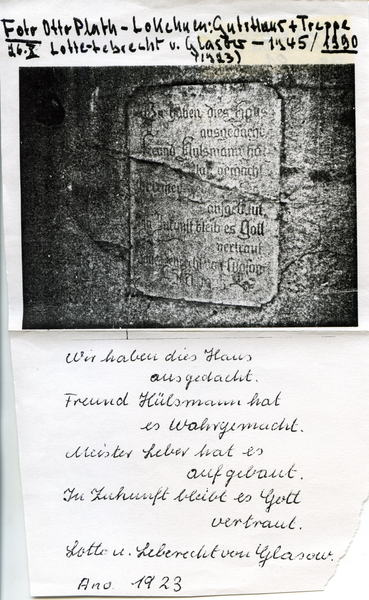 Foto Otto Plath - Lokehnen: Gutshaus + Treppe
26.X Lotte + Lebrecht v. Glasow - 1945/1990
(1923)
Wir haben dies Haus
ausgedacht
Freund Hülsmann hat
gemacht
aufgebaut
In Zukunft bleib es Gott
vertraut
von Glasow
Wir haben dies Haus
ausgedacht.
Freund Hülsmann hat
es Wahrgemacht.
Meister Leber hat es
aufgebaut.
In Zukunft bleibt es Gott
vertraut.
Lotte u. Leberecht von Glasow.
Ano 1923